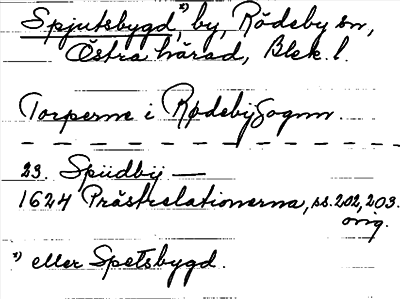 Spjutsbygd,*) by, Rödeby sn,
Östra härad, Blek. l.
Torperne i Rødebÿ Sognn.
23. Spiidbÿ —
1624 Prästrelationerna, ss. 202, 203.
orig.
*) eller Spetsbygd.